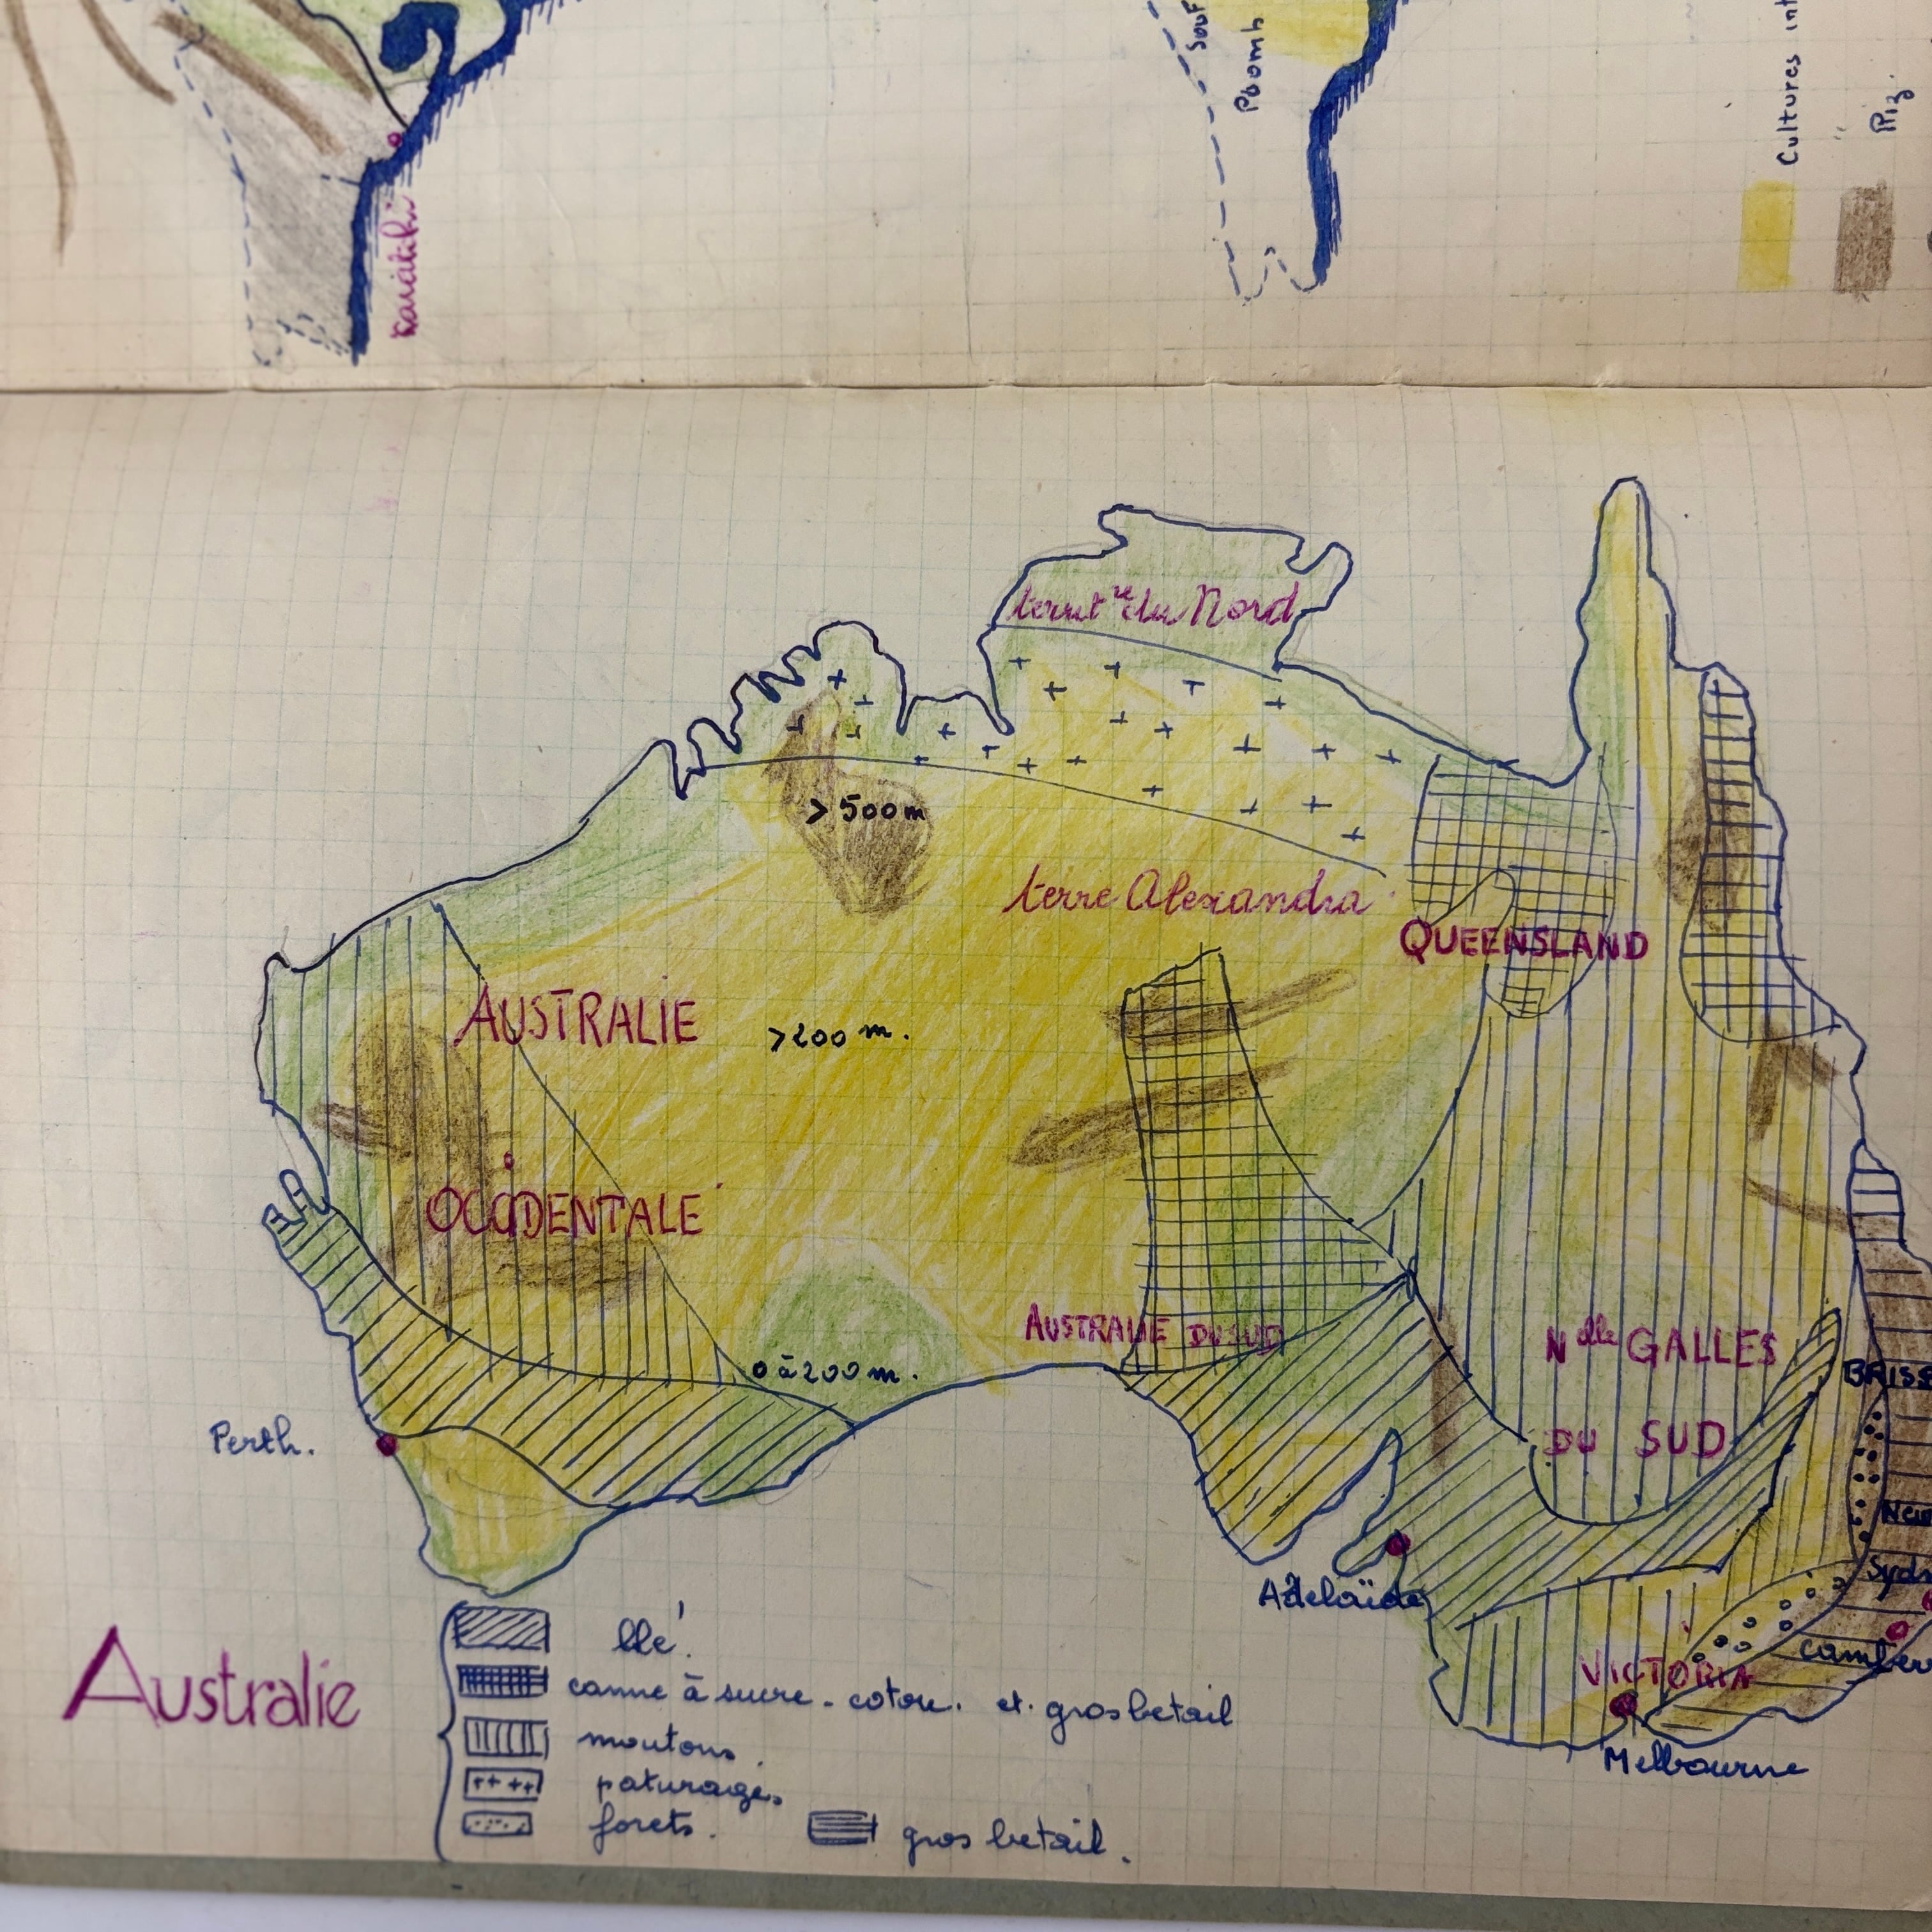 Cultures int
Riz
territre du Nord
> 500 m
terre Alexandra
QUEENSLAND
AUSTRALIE
>200 m.
OCCIDENTALE
AUSTRALIE DU SUD
Nelle GALLES
DU SUD
0 à 200 m.
BRISB
Perth.
New
Sydn
Adelaïde
camber
VICTORIA
Melbourne
Australie
blé
canne à sucre - coton. et. gros betail
moutons.
paturages
forets.
gros betail.